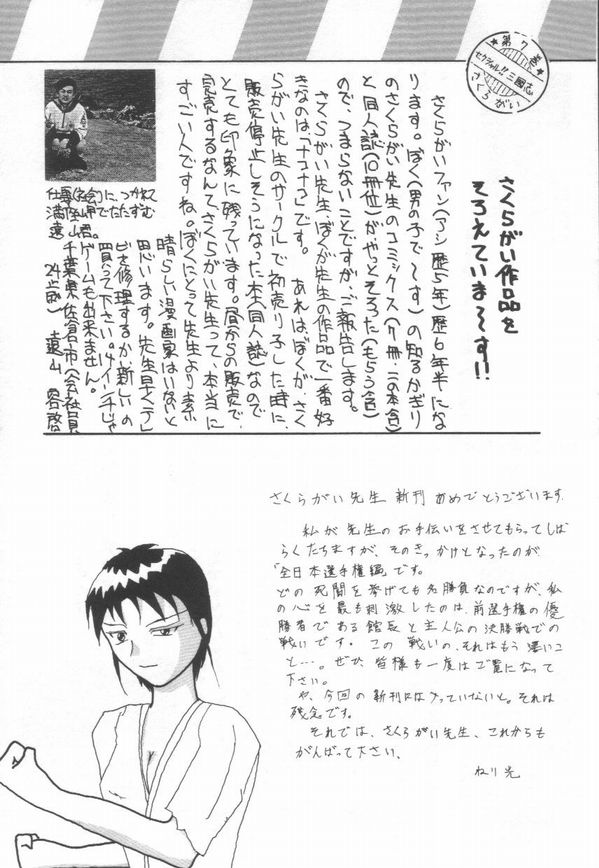 ★第7巻★
セクシャル!!三國志
さくらがい
さくらがい作品を
そろえていま〜す!!
さくらがいファン(アシ歴5年)歴6年半にな
ります。ぼく(男の子で〜す)の知るかぎり
のさくらがい先生のコミックス(7冊・二の本含)
と同人誌(10冊位)がやっとそろた(もらう含)
ので、つまらないことですが、ご報告します。
さくらがい先生、ぼくが先生の作品で一番好
きなのは、「ナコナコ」です。あれはぼくが、さく
らがい先生のサークルで初売り子した時に、
販売停止しそうになった本(同人誌)なので
とても印象に残っています。昼からの販売で、
完売するなんて、さくらがい先生って、本当に
すごい人ですね。ぼくにとって先生より素
晴らしい漫画家はいないと
思います。先生早くテレ
ビを修理するかい新しいの
買って下さい。14インチじゃ
ゲームも出来ません。
千葉県佐倉市(会社員
24歳) 遠山
仕事(佐倉)に、つかれて
満
遠山君。
さくらがい先生 新刊 おめでとうございます
私が先生のお手伝いをさせてもらってしば
らくたちますが、そのきっかけとなったのが
「全日本選手権編」です。
どの死闘を挙げても名勝負なのですが、私
の心を最も刺激したのは、前選手権の優
勝者である館長と主人公の決勝戦での
戦いです。この戦いの、それはもう凄いこ
と…。ぜひ皆様も一度はご覧になって
下さい。
や、今回の新刊には入っていないと。それは
残念です。
それでは、さくらがい先生、これからも
がんばって下さい、
ねり光